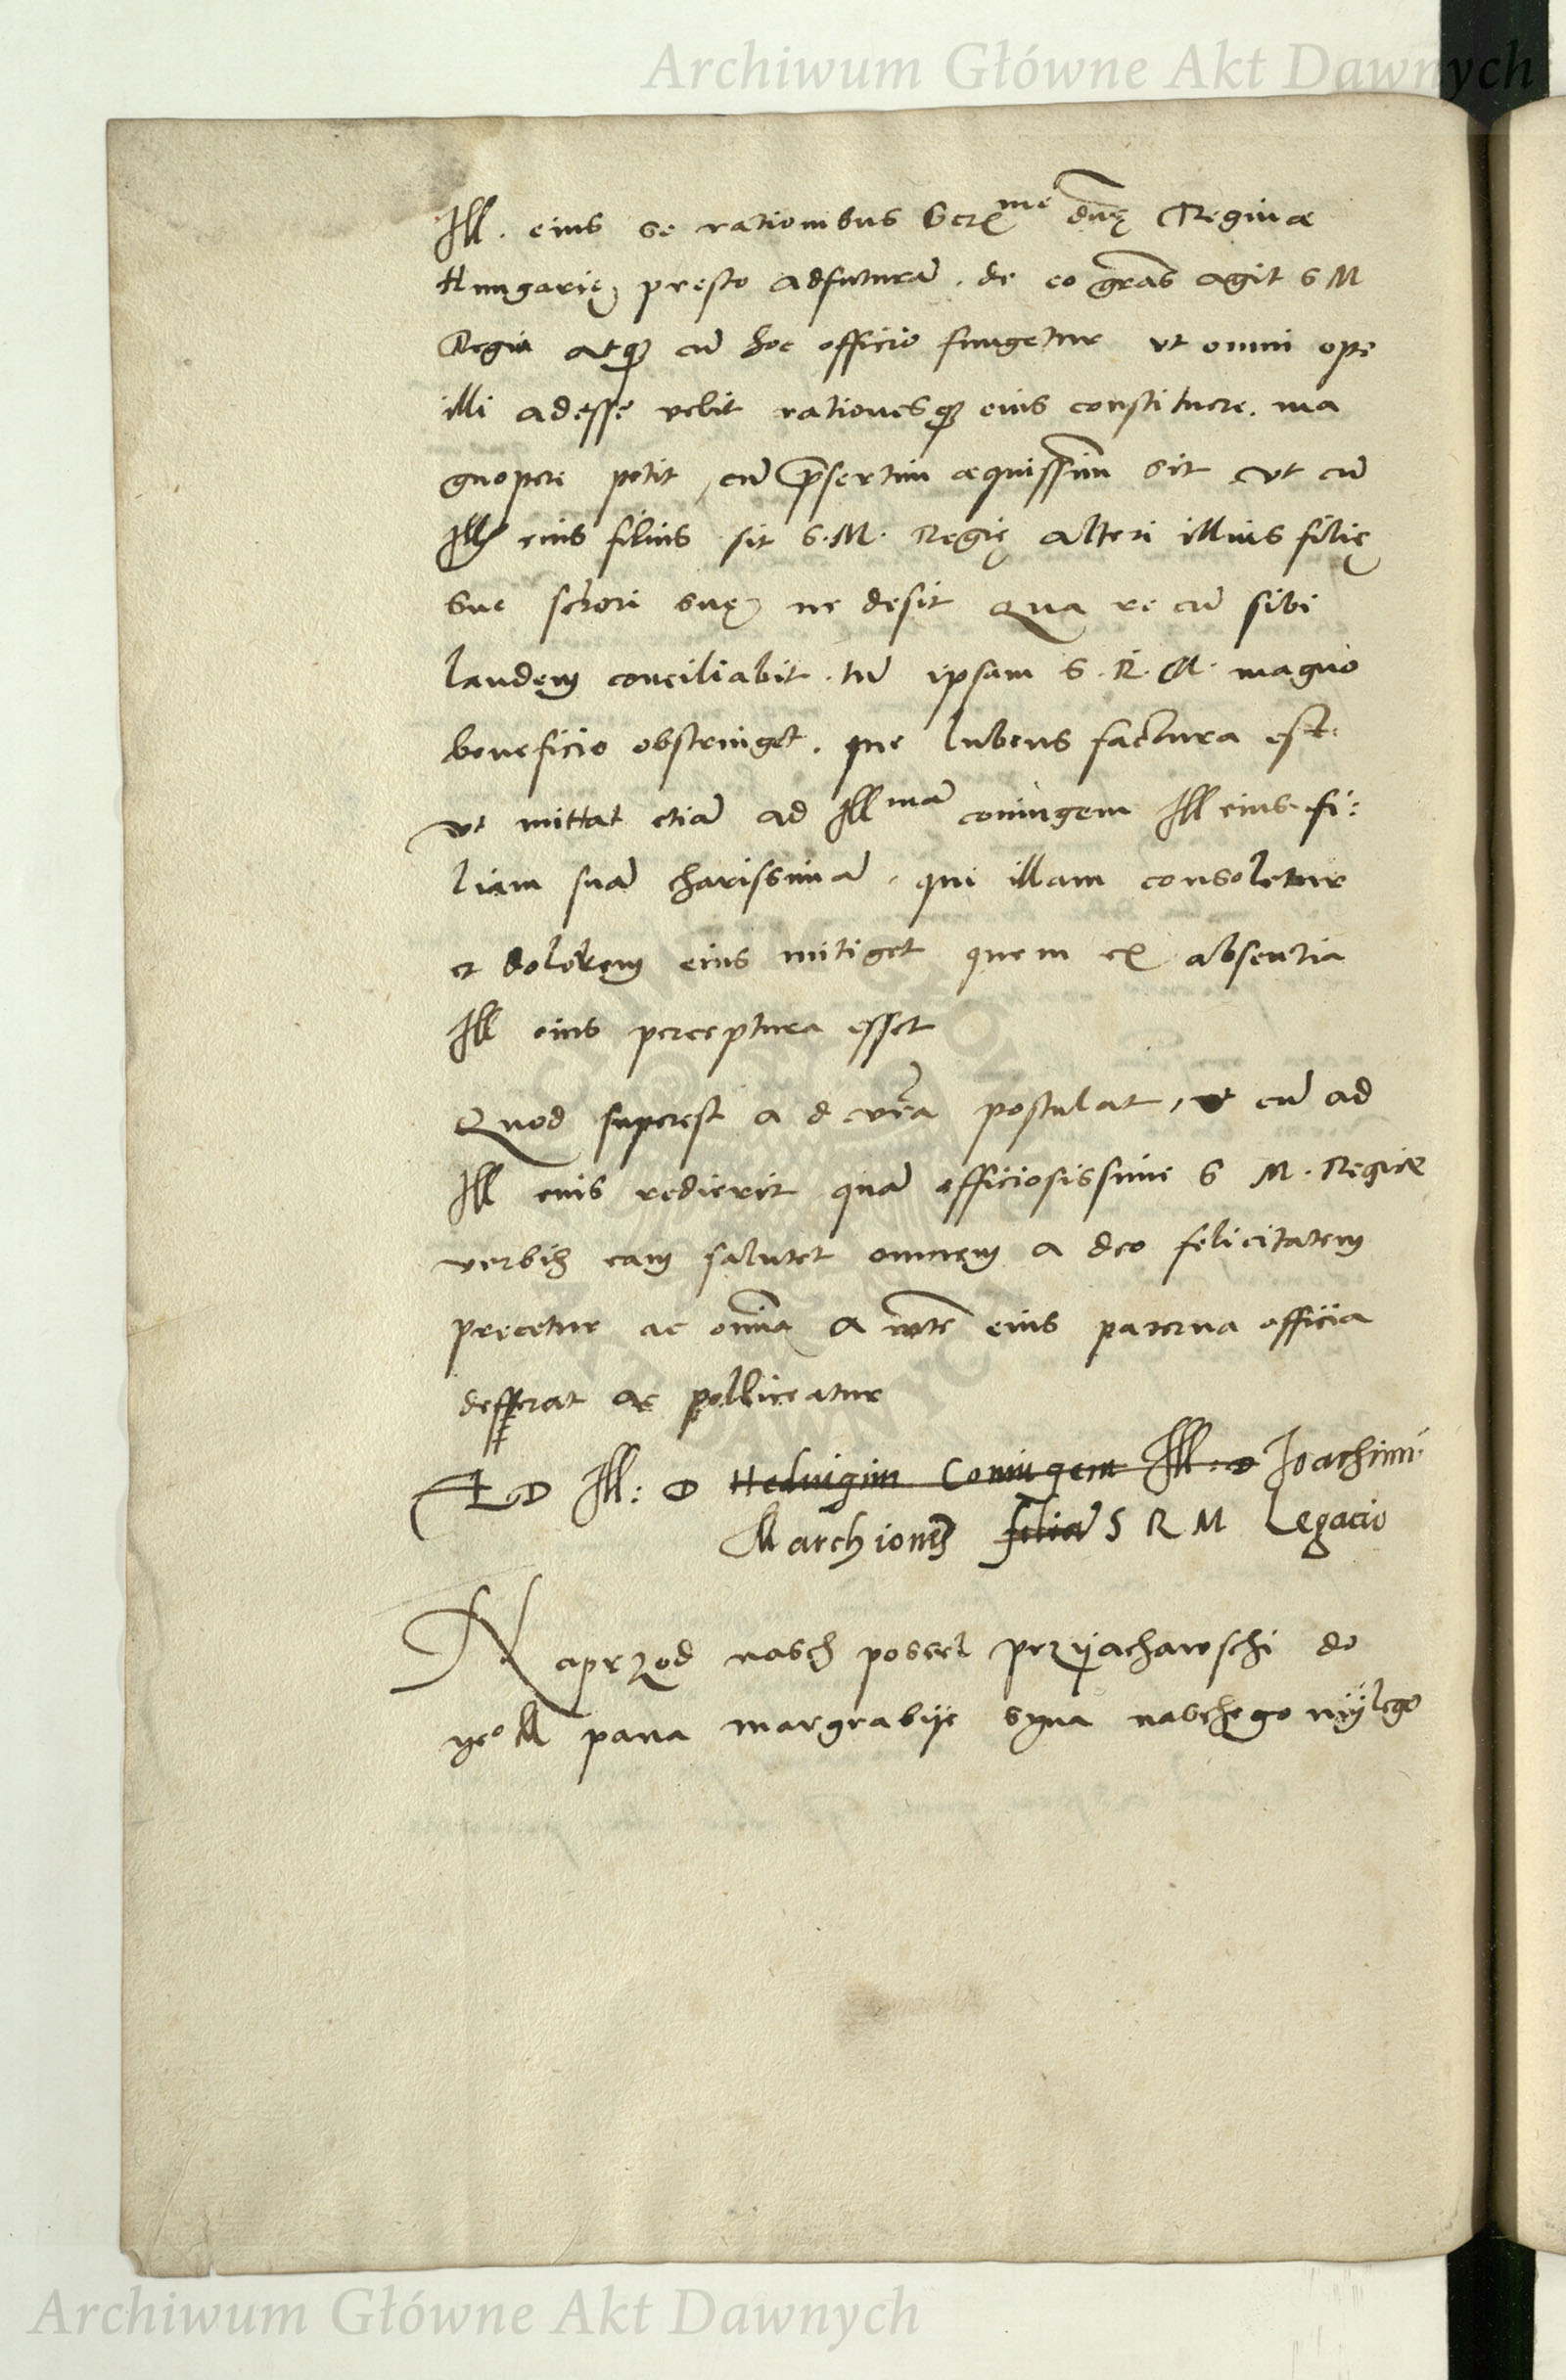 Archiwum Główne Akt Dawnych
Ill. eius se rationibus Ser^me dnę Reginæ
Hungarię presto adfuturā. de eo grās agit S M
Regia atq cū hoc officio fungetur ut omni ope
illi adesse velit rationesq eius constituere. ma
gnopere petit, cū p̄sertim æquissim̄ sit ut cū
Ill eius filius sit S. M. Regię alteri illius filię
sue sorori suę ne desit Qua re cū sibi
laudem conciliabit. tū ipsam S. R. M. magno
beneficio obstringet. que lubens factura est.
ut mittat etiā ad Ill^mā coniugem Ill eius fi:
liam suā charissimā, qui illam consoletur
et dolorem eius mitiget quem ex absentia
Ill eius perceptura esset
Quod superest a d vrā postulat, ut cū ad
Ill eius redierit quā officiosissime S M. Regiæ
verbis eam salutet omnem a deo felicitatem
precetur ac om̄ia a mte eius paterna officia
defferat ac polliceatur
AD Ill: D Hedvigim Coniugem Ill. D Ioachimi
Marchionē filiā S R M Legacio
Naprzod nasch possel przyiachawschi do
yeo M pana margrabije syna naschego mylego
Archiwum Główne Akt Dawnych